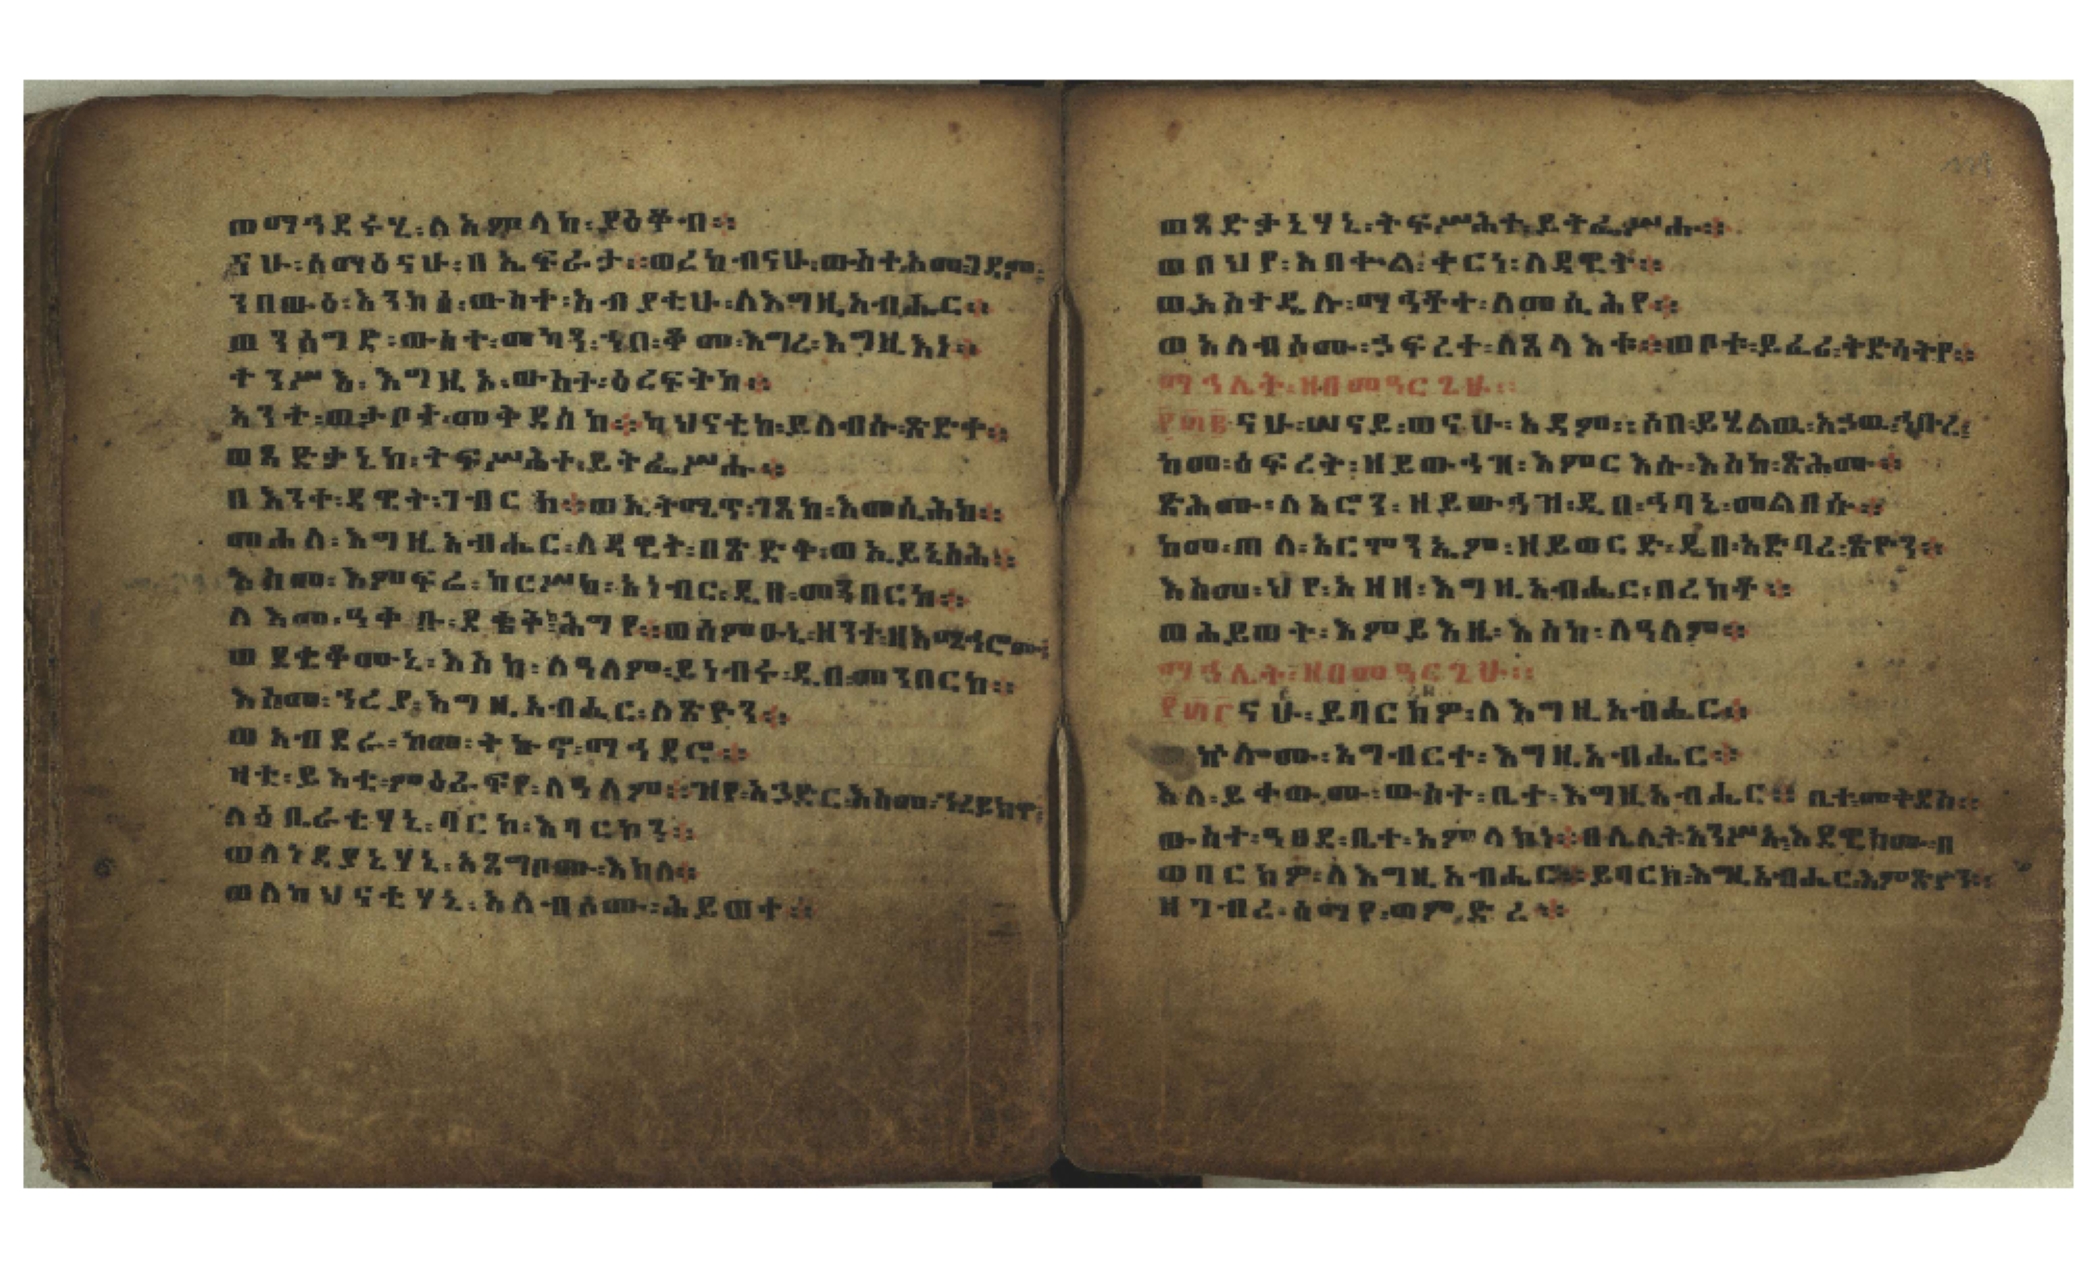 ወማኅደሩሂ፡ለአምላከ፡ያዕቆብ።
ናሁ፡ሰማዕናሁ፡በኤፍራታ።ወረከብናሁ፡ውስተ፡አመ፡ገዳም፡
ንበውዕ፡እንከሰ፡ውስተ፡አብያቲሁ፡ለእግዚአብሔር።
ወንሰግድ፡ውስተ፡መካን፡ኀበ፡ቆመ፡እግረ፡እግዚእነ።
ተንሥእ፡እግዚኦ፡ውስተ፡ዕረፍትከ።
አንተ፡ወታቦተ፡መቅደስከ።ካህናቲከ፡ይለብሱ፡ጽድቀ።
ወጻድቃኒከ፡ትፍሥሕተ፡ይትፌሥሑ።
በእንተ፡ዳዊት፡ገብርከ።ወኢትሚጥ፡ገጸከ፡እመሲሕከ።
መሐለ፡እግዚአብሔር፡ለዳዊት፡በጽድቅ፡ወኢይኔስሕ።
እስመ፡እምፍሬ፡ከርሥከ፡አነብር፡ዲበ፡መንበርከ።
ለእመ፡ዓቀቡ፡ደቂቅ፡ሕግየ።ወስምዑኒ፡ዘንተ፡ዘአሜህሮሙ፡
ወደቂቆሙኒ፡እስከ፡ለዓለም፡ይነብሩ፡ዲበ፡መንበርከ።
እስመ፡ኀረያ፡እግዚአብሔር፡ለጽዮን።
ወአብደራ፡ከመ፡ትኩኖ፡ማኅደሮ።
ዛቲ፡ይእቲ፡ምዕራፍየ፡ለዓለም።ዝየ፡አኃድር፡እስመ፡ኀረይክዋ፡
ለዕቤራቲሃኒ፡ባርኮ፡እባርኮን።
ወለነዳያኒሃኒ፡አጸግቦሙ፡እክለ።
ወለካህናቲሃኒ፡አለብሶሙ፡ሕይወተ።
ወጻድቃኒሃኒ፡ትፍሥሕተ፡ይትፌሥሑ።
ወበህየ፡አበቍል፡ቀርነ፡ለዳዊት።
ወአስተዴሉ፡ማኅቶተ፡ለመሲሕየ።
ወአለብሶሙ፡ኃፍረተ፡ለጸላእቱ።ወቦቱ፡ይፈሪ፡ትድሳትየ።
ማኅሌት፡ዘበመዓርጊሁ።
፻፴፪ ናሁ፡ሠናይ፡ወናሁ፡አዳም።ሶበ፡ይሄልዉ፡አኃዉ፡ኅቡረ፡
ከመ፡ዕፍረት፡ዘይውኅዝ፡እምርእሱ፡እስከ፡ጽሕሙ።
ጽሕሙ፡ለአሮን፡ዘይውኅዝ፡ዲበ፡ኅባኔ፡መልበሱ።
ከመ፡ጠለ፡አርሞንኤም፡ዘይወርድ፡ዴበ፡አድባረ፡ጽዮን።
እስመ፡ህየ፡አዘዘ፡እግዚአብሔር፡በረከቶ።
ወሕይወት፡እምይእዜ፡እስከ፡ለዓለም።
ማኅሌት፡ዘበመዓርጊሁ።
፻፴፫ ናሁ፡ይባርክዎ፡ለእግዚአብሔር።
ኵሎሙ፡አግብርተ፡እግዚአብሔር።
እለ፡ይቀውሙ፡ውስተ፡ቤተ፡እግዚአብሔር። ቤተ፡መቅደስ።
ውስተ፡ዓፀደ፡ቤተ፡አምላክነ።በሌሊት፡አንሥኡ፡እደዊክሙ፡በ
ወባርክዎ፡ለእግዚአብሔር።ይባርክ፡እግዚአብሔር፡እምጽዮን።
ዘገብረ፡ሰማየ፡ወምድረ።